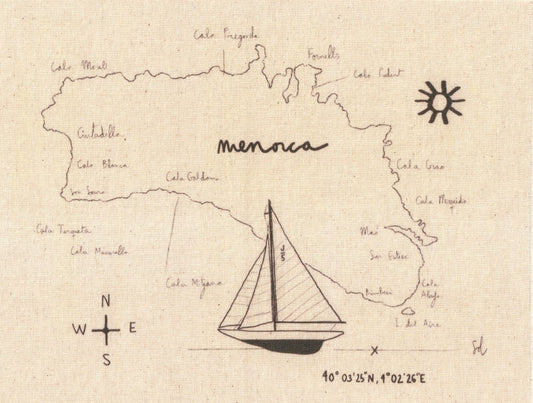 Cala Pregonda
Fornells
Cala Morell
Cala Pudent
Ciutadella
menorca
Cala Blanca
Cala Grao
Cala Galdana
Son Saura
Cala Mesquida
Cala Turqueta
Maó
Cala Macarella
San Esteve
Cala Mitjana
Cala
Alcafar
Binibeca
I. del Aire
N
W E
S
Sol
X
40° 03'25"N, 4° 02'26"E